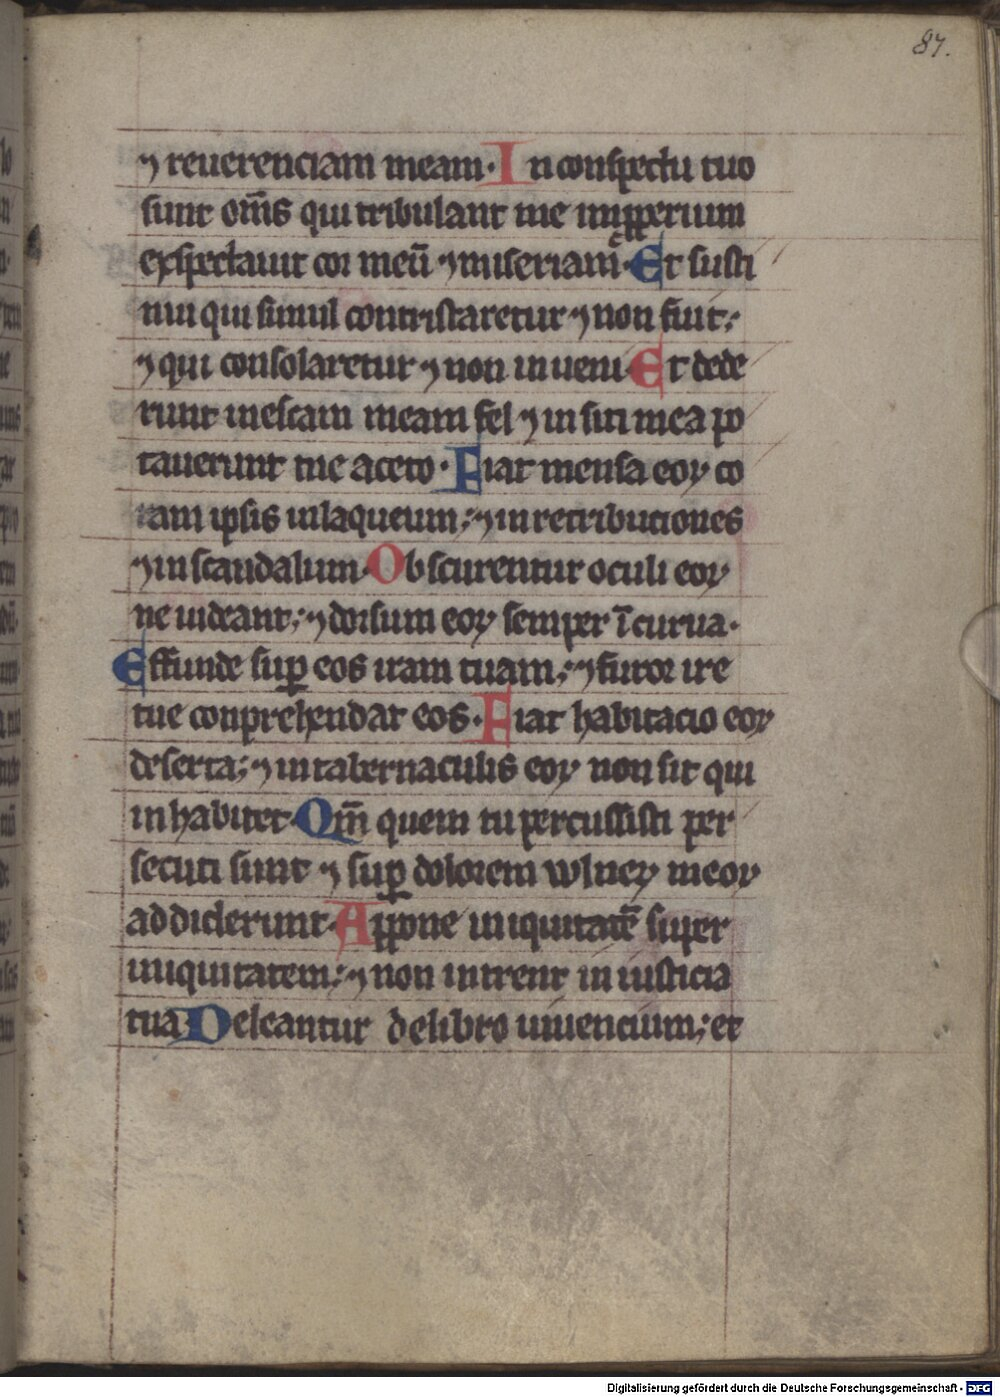 87.
⁊ reuerenciam meam· In conspectu tuo
sunt om̄s qui tribulant me impperium
exspectauit cor meū ⁊ miseriam· Et susti
nui qui simul contristaretur ⁊ non fuit;
⁊ qui consolaretur ⁊ non inueni· Et dede
runt in escam meam fel ⁊ in siti mea po
tauerunt me aceto· Fiat mensa eoꝝ co
ram ipsis in laqueum; ⁊ in retributiones
⁊ in scandalum· Obscurentur oculi eoꝝ
ne uideant; ⁊ dorsum eoꝝ semper īcurua·
Effunde suꝑ eos iram tuam; ⁊ furor ire
tue conprehendat eos· Fiat habitacio eoꝝ
deserta; ⁊ in tabernaculis eoꝝ non sit qui
inhabitet· Qm̄ quem tu percussisti per
secuti sunt ⁊ suꝑ dolorem wlneꝝ meoꝝ
addiderunt· Appone iniquitatē super
iniquitatem; ⁊ non intrent in iusticia
tua Deleantur de libro uiuencium; et
Digitalisierung gefördert durch die Deutsche Forschungsgemeinschaft - DFG